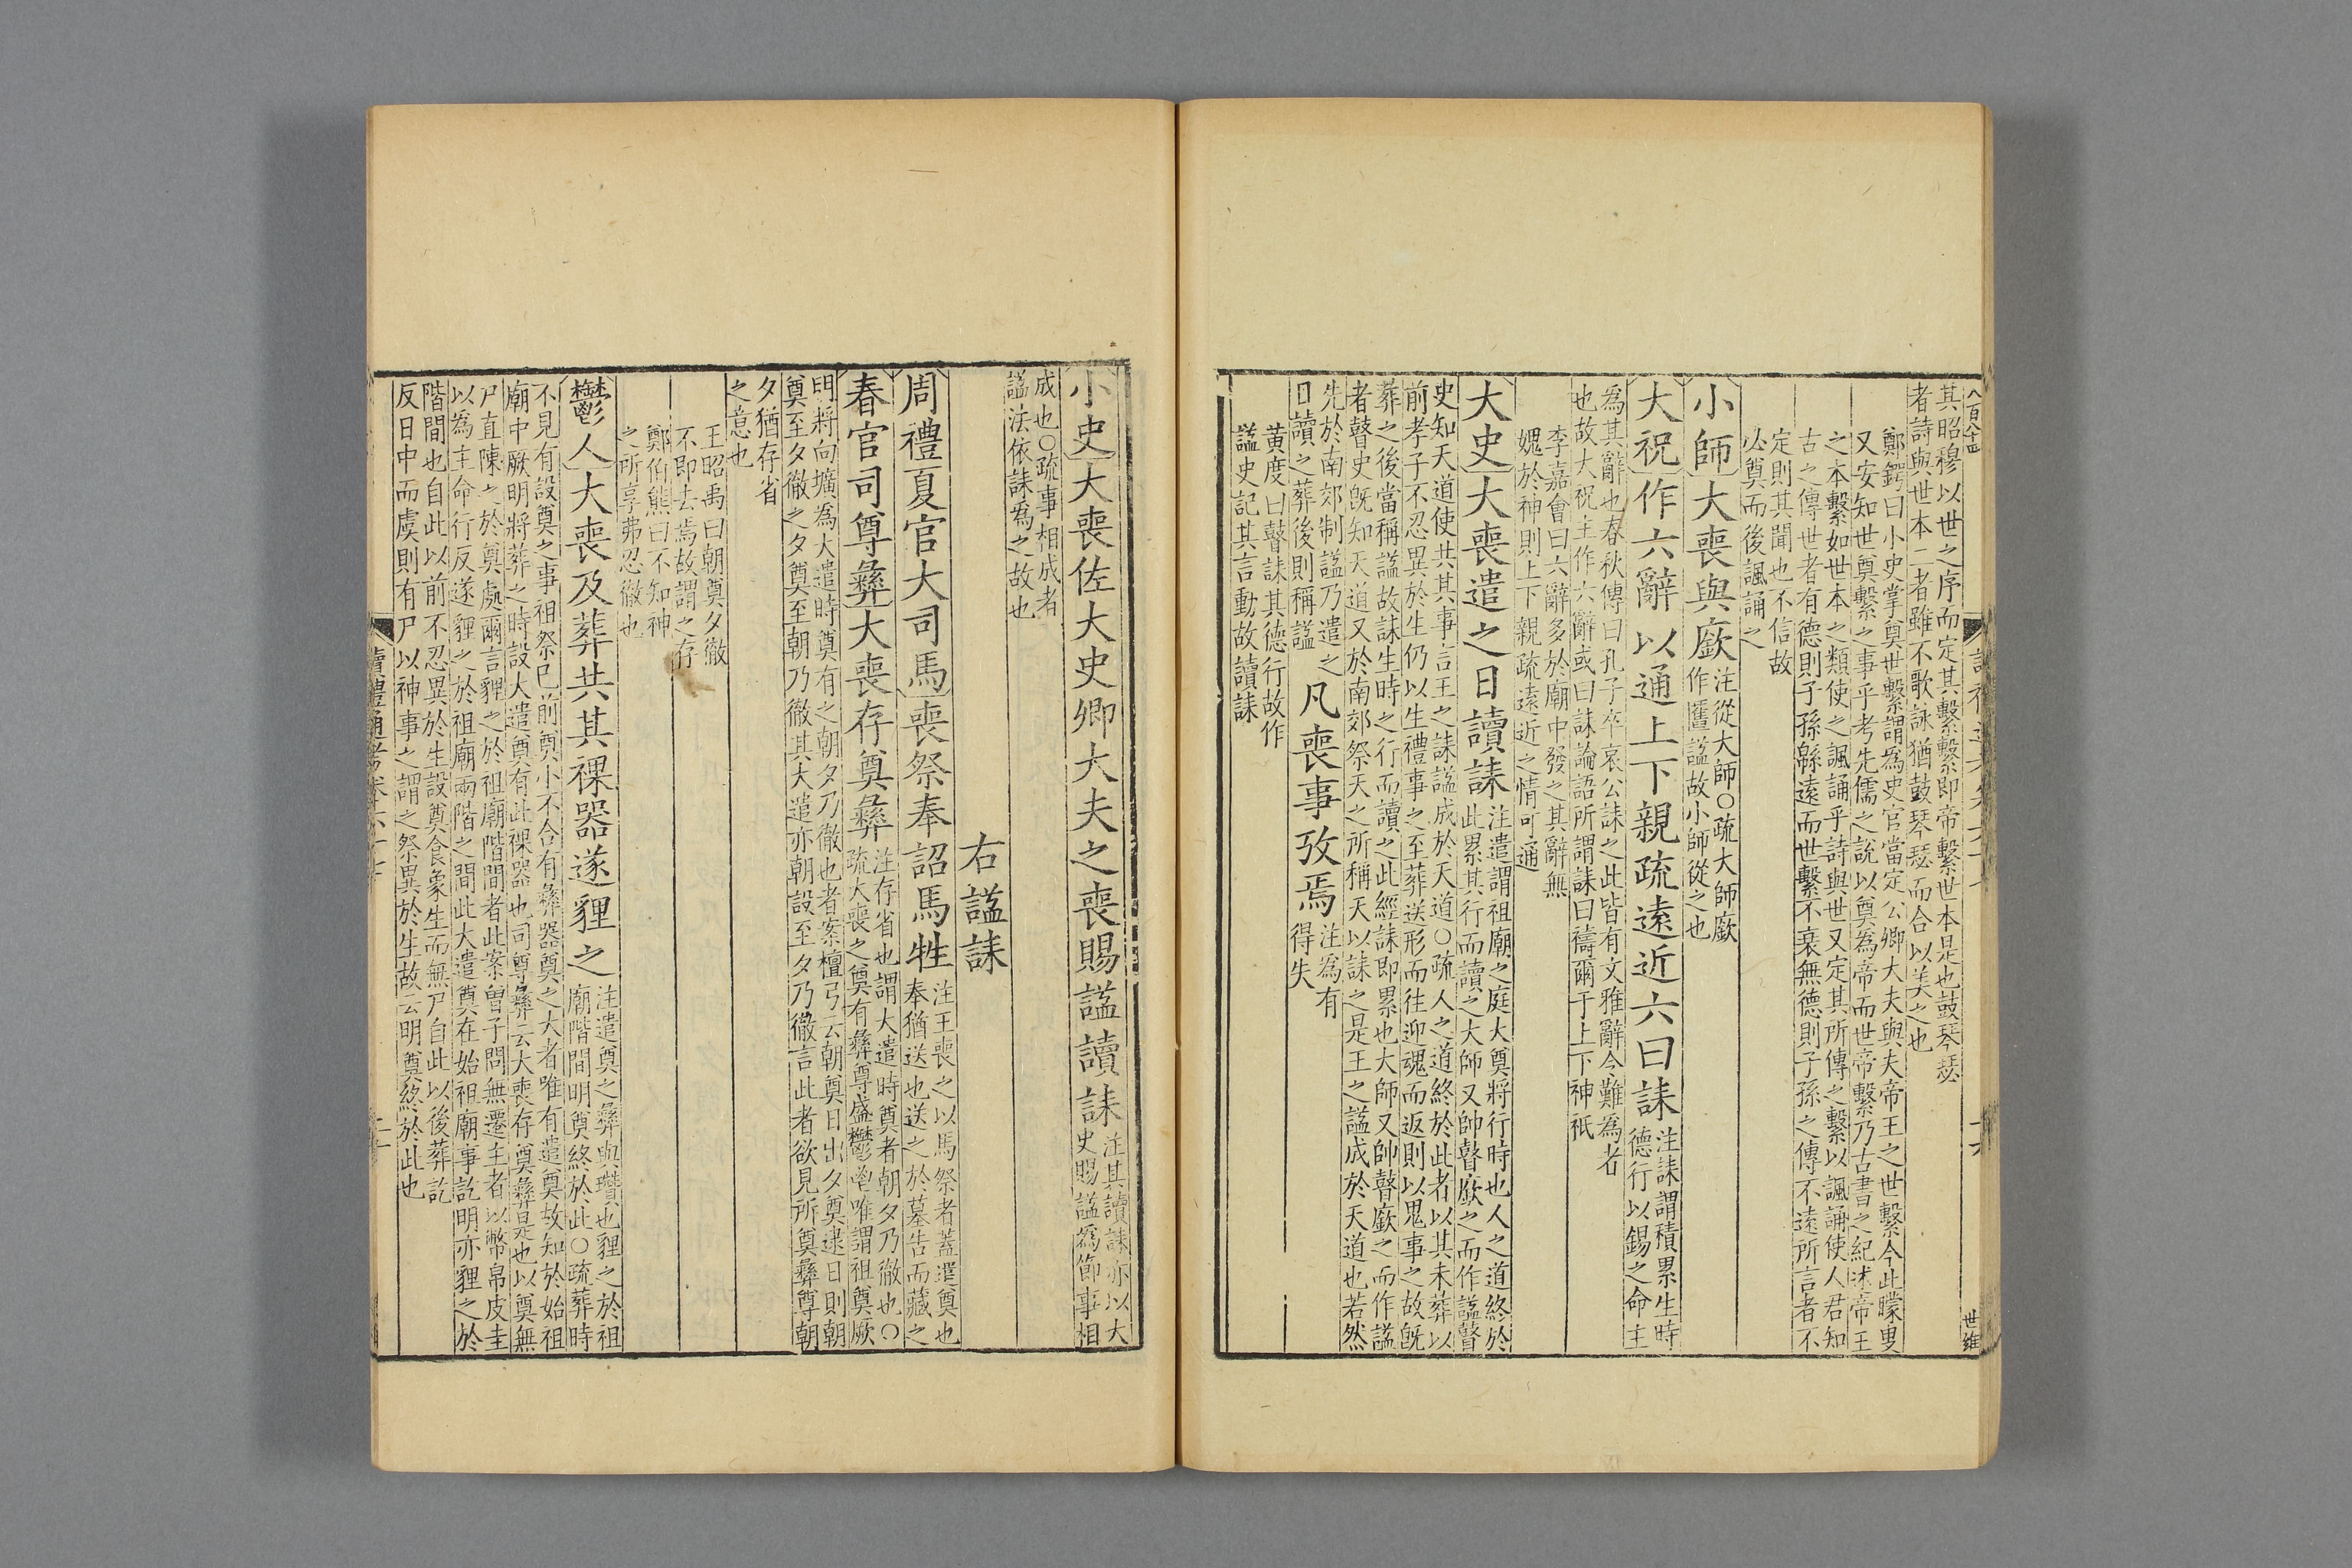 八百八十四
其昭穆以世之序而定其繫繫即帝繫世本是也鼓琴瑟
者詩與世本二者雖不歌詠猶鼓琴瑟而合以美之也
鄭鍔曰小史掌奠世繫謂為史官當定公卿大夫與夫帝王之世繫今此矇叟
又安知世奠繫之事乎考先儒之說以奠為帝而世帝繫乃古書之紀述帝王
之本繫如世本之類使之諷誦乎詩與世又定其所傳之繫以諷誦使人君知
古之傳世者有德則子孫緜遠而世繫不衰無德則子孫之傳不遠所言者不
定則其聞也不信故
必奠而後諷誦之
小師大喪與廞
注從大師○疏大師廞
作匶諡故小師從之也
大祝作六辭以通上下親疏遠近六曰誄
注誄謂積累生時
德行以錫之命主
為其辭也春秋傳曰孔子卒哀公誄之此皆有文雅辭令難為者
也故大祝主作六辭或曰誄論語所謂誄曰禱爾于上下神祇
李嘉會曰六辭多於廟中發之其辭無
媿於神則上下親疏遠近之情可通
大史大喪遣之日讀誄
注遣謂祖廟之庭大奠將行時也人之道終於
此累其行而讀之大師又帥瞽廞之而作諡瞽
史知天道使共其事言王之誄諡成於天道○疏人之道終於此者以其未葬以
前孝子不忍異於生仍以生禮事之至葬送形而往迎魂而返則以鬼事之故旣
葬之後當稱諡故誄生時之行而讀之此經誄即累也大師又帥瞽廞之而作諡
者瞽史旣知天道又於南郊祭天之所稱天以誄之是王之諡成於天道也若然
先於南郊制諡乃遣之
日讀之葬後則稱諡
凡喪事攷焉
注為有
得失
黃度曰瞽誄其德行故作
諡史記其言動故讀誄
世維
小史大喪佐大史卿大夫之喪賜諡讀誄
注其讀誄亦以大
史賜諡為節事相
成也○疏事相成者
諡法依誄為之故也
右諡誄
周禮夏官大司馬喪祭奉詔馬牲
注王喪之以馬祭者蓋遣奠也
奉猶送也送之於墓告而藏之
春官司尊彝大喪存奠彝
注存省也謂大遣時奠者朝夕乃徹也○
疏大喪之奠有彝尊盛鬱鬯唯謂祖奠厥
明將向壙為大遣時奠有之朝夕乃徹也者案檀弓云朝奠日出夕奠逮日則朝
奠至夕徹之夕奠至朝乃徹其大遣亦朝設至夕乃徹言此者欲見所奠彝尊朝
夕猶存省
之意也
王昭禹曰朝奠夕徹
不即去焉故謂之存
鄭伯熊曰不知神
之所享弗忍徹也
鬱人大喪及葬共其祼器遂貍之
注遣奠之彝與瓚也貍之於祖
廟階間明奠終於此○疏葬時
不見有設奠之事祖祭已前奠小不合有彝器奠之大者唯有遣奠故知於始祖
廟中厥明將葬之時設大遣奠有此祼器也司尊彝云大喪存奠彝是也以奠無
尸直陳之於奠處爾言貍之於祖廟階間者此案曾子問無遷主者以幣帛皮圭
以為主命行反遂貍之於祖廟兩階之間此大遣奠在始祖廟事訖明亦貍之於
階間也自此以前不忍異於生設奠食象生而無尸自此以後葬訖
反日中而虞則有尸以神事之謂之祭異於生故云明奠終於此也
讀禮通考卷六十